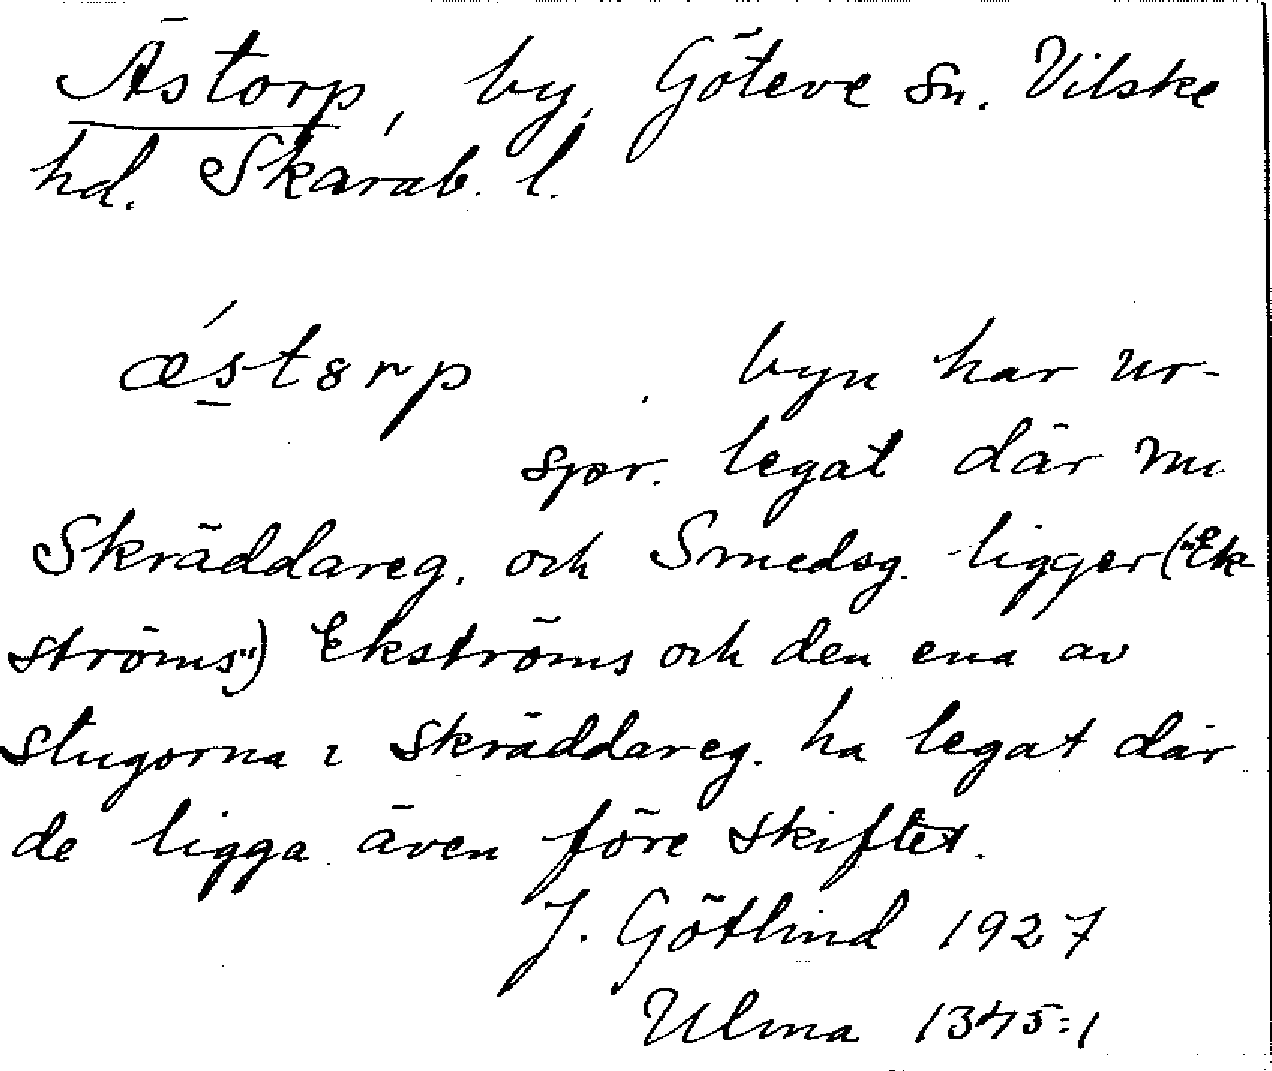 Ästorp, by, Göteve sn. Vilske
hd. Skarab. l.
ǽstorp . byn har ur-
spr. legat där nu
Skräddareg. och Smedsg. ligger ("Ek
ströms") Ekströms och den ena av
stugorna i Skräddareg. ha legat där
de ligga även före skiftet.
J. Götlind 1927
Ulma 1345:1